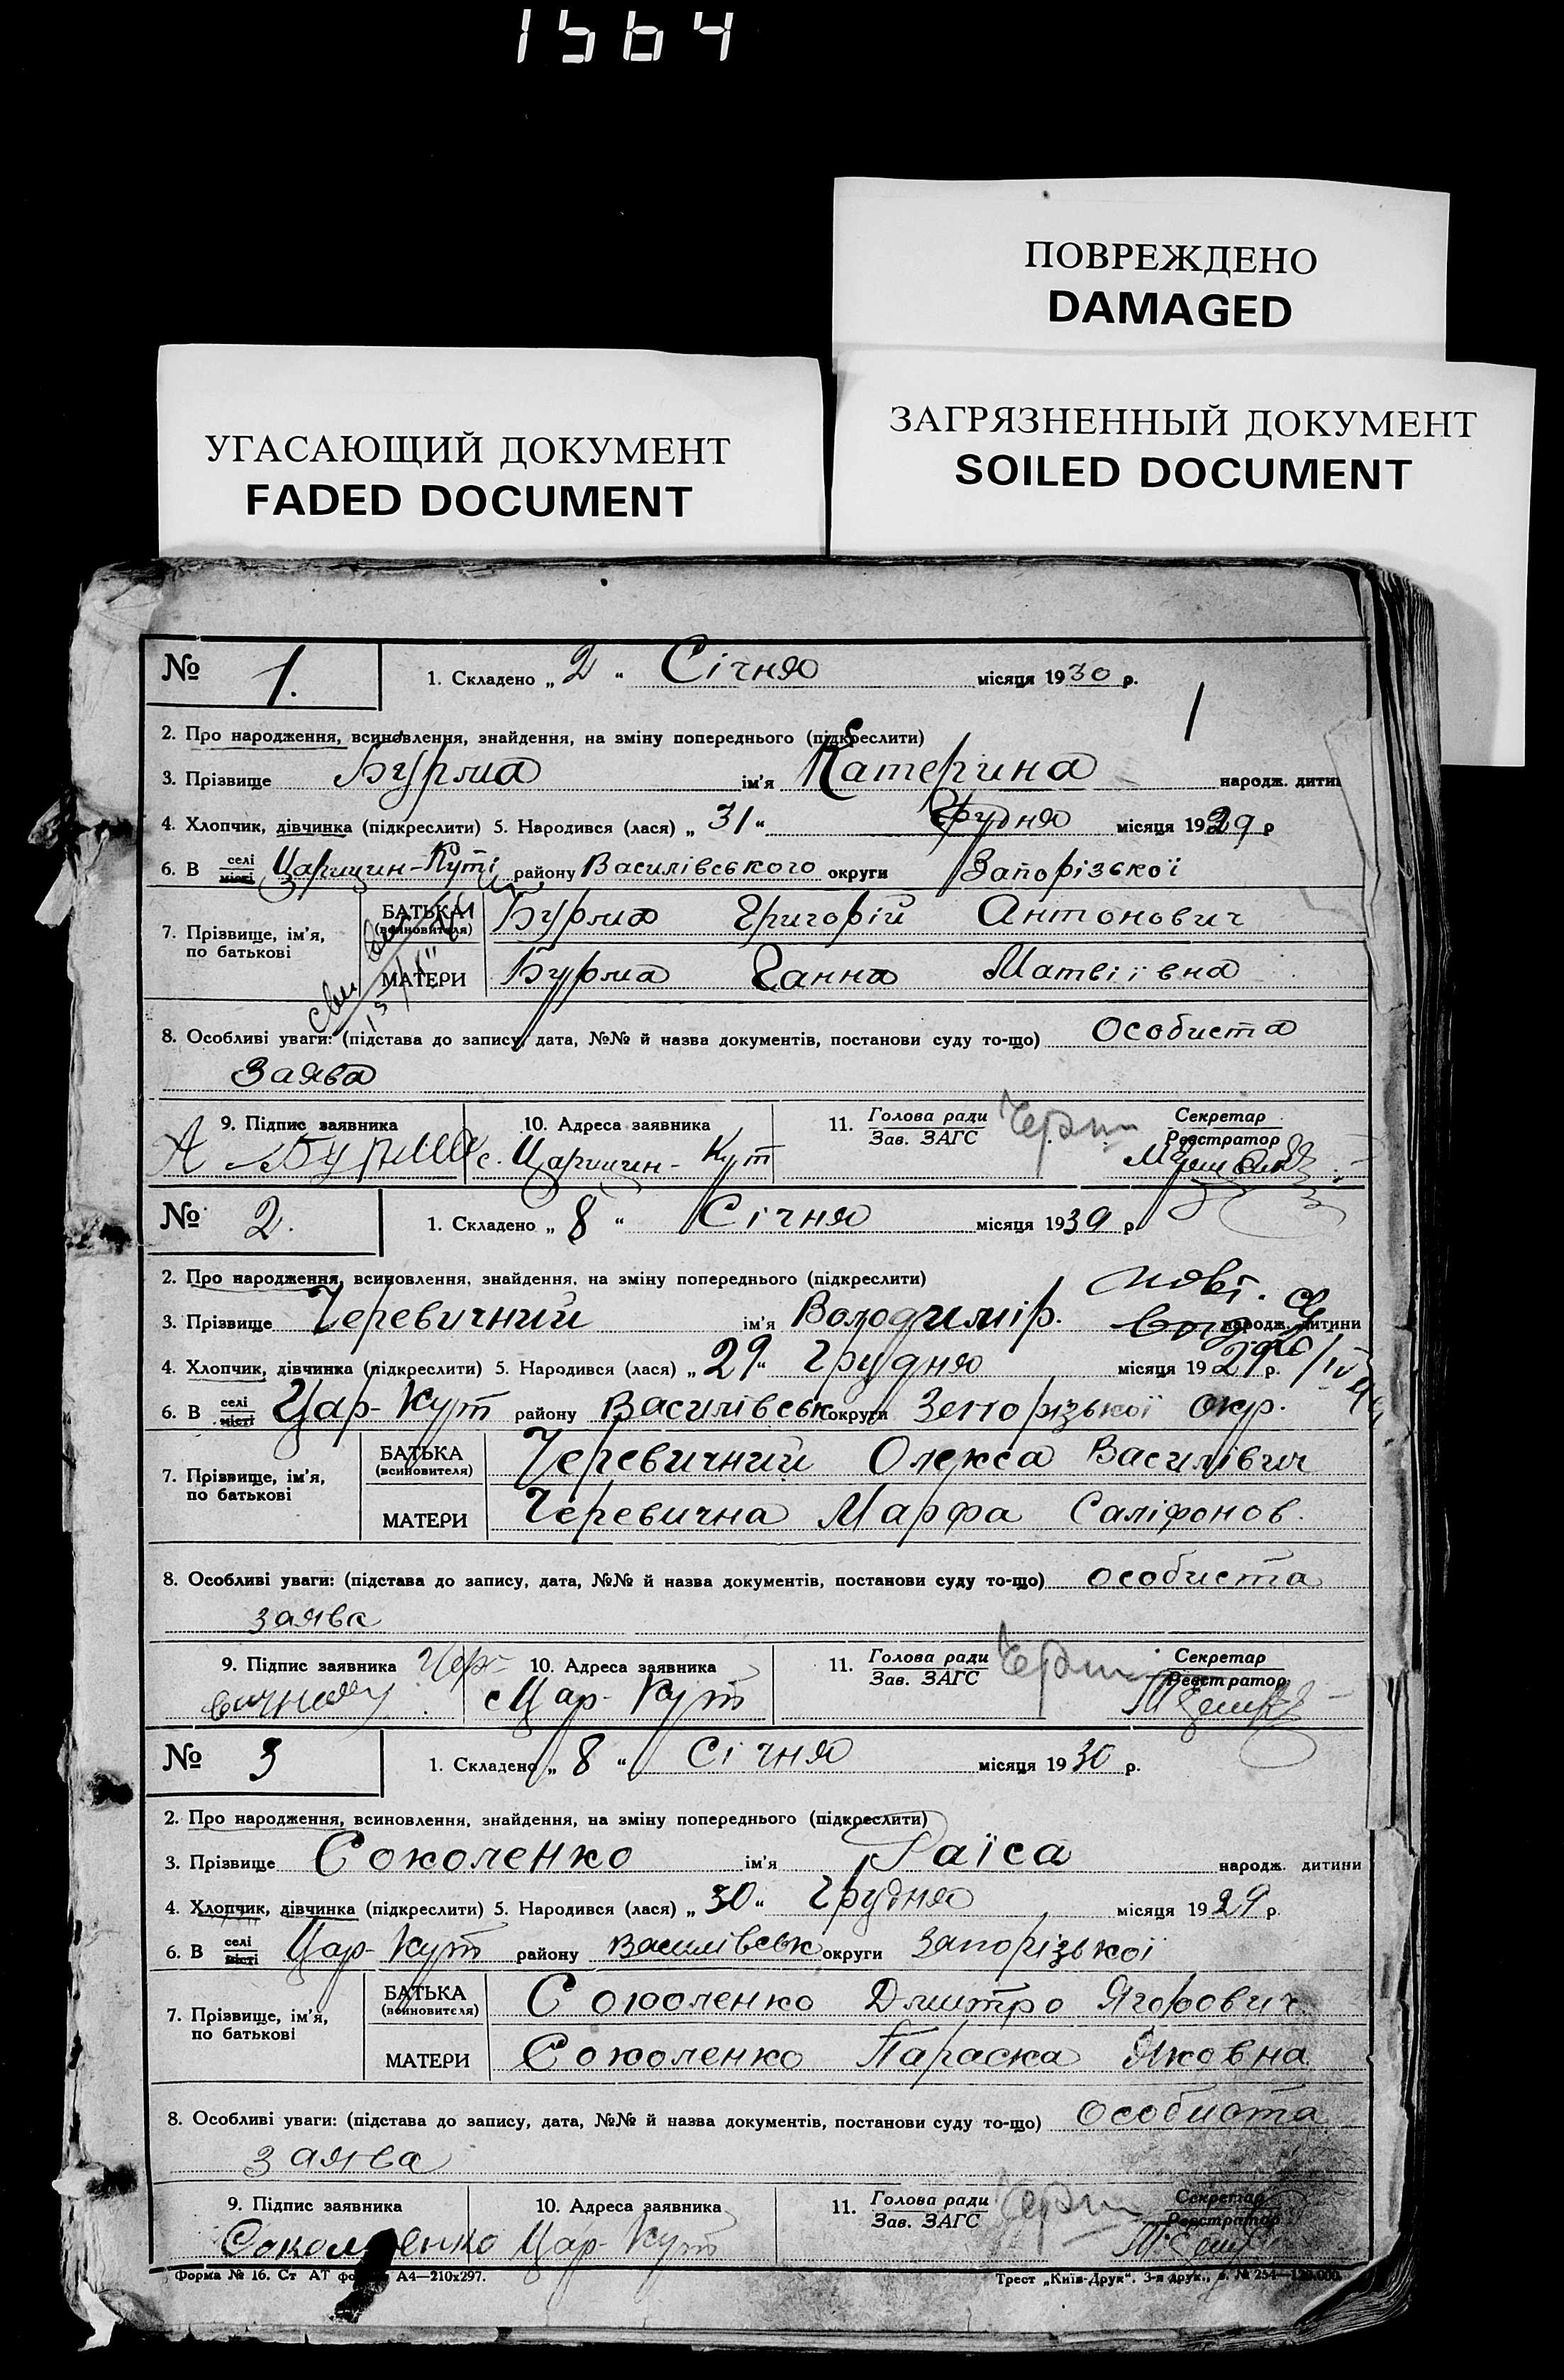 1564
ПОВРЕЖДЕНО
DAMAGED
УГАСАЮЩИЙ ДОКУМЕНТ
FADED DOCUMENT
ЗАГРЯЗНЕННЫЙ ДОКУМЕНТ
SOILED DOCUMENT
№ 1. 1. Складено „ 2 “ Січня місяця 1930 р.
1
2. Про народження, всиновлення, знайдення, на зміну попереднього (підкреслити)
3. Прізвище Бурма ім'я Катерина народж. дитин
4. Хлопчик, дівчинка (підкреслити) 5. Народився (лася) „ 31 “ Грудня місяця 1929 р
6. В селі місті Царицин-Куті району Василівського округи Запорізької
7. Прізвище, ім'я, по батькові
БАТЬКА (всиновителя) Бурма Григорій Антонович
МАТЕРИ Бурма Ганна Матвіівна
8. Особливі уваги: (підстава до запису, дата, №№ й назва документів, постанови суду то-що) Особиста
Заява
9. Підпис заявника 10. Адреса заявника 11. Голова ради Зав. ЗАГС Секретар Реєстратор
А Бурма с. Царицин-Кут
№ 2. 1. Складено „ 8 “ Січня місяця 1930 р.
2. Про народження, всиновлення, знайдення, на зміну попереднього (підкреслити)
3. Прізвище Черевичний ім'я Володимір. народж. дитини
4. Хлопчик, дівчинка (підкреслити) 5. Народився (лася) „ 29 “ Грудня місяця 1929 р.
6. В селі місті Цар-Кут району Василівськ округи Запорізької окр.
7. Прізвище, ім'я, по батькові
БАТЬКА (всиновителя) Черевичний Олекса Василівич
МАТЕРИ Черевична Марфа Саліфонов.
8. Особливі уваги: (підстава до запису, дата, №№ й назва документів, постанови суду то-що) особиста
заява
9. Підпис заявника 10. Адреса заявника 11. Голова ради Зав. ЗАГС Секретар Реєстратор
с Цар-Кут
№ 3 1. Складено „ 8 “ Січня місяця 1930 р.
2. Про народження, всиновлення, знайдення, на зміну попереднього (підкреслити)
3. Прізвище Соколенко ім'я Раїса народж. дитини
4. Хлопчик, дівчинка (підкреслити) 5. Народився (лася) „ 30 “ Грудня місяця 1929 р.
6. В селі місті Цар-Кут району Василівськ округи Запорізької
7. Прізвище, ім'я, по батькові
БАТЬКА (всиновителя) Соколенко Дмитро Ягорович
МАТЕРИ Соколенко Параска Яковна
8. Особливі уваги: (підстава до запису, дата, №№ й назва документів, постанови суду то-що) Особиста
заява
9. Підпис заявника 10. Адреса заявника 11. Голова ради Зав. ЗАГС Секретар Реєстратор
Соколенко Цар-Кут
Форма № 16. Ст АТ А4—210х297. Трест „Київ-Друк“. 3-я друк., № 254